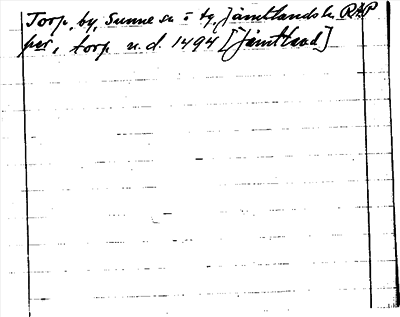 Torp, by, Sunne sn i tg, Jämtlands l. RAP
per, torp u.d. 1494 [Jämtland]